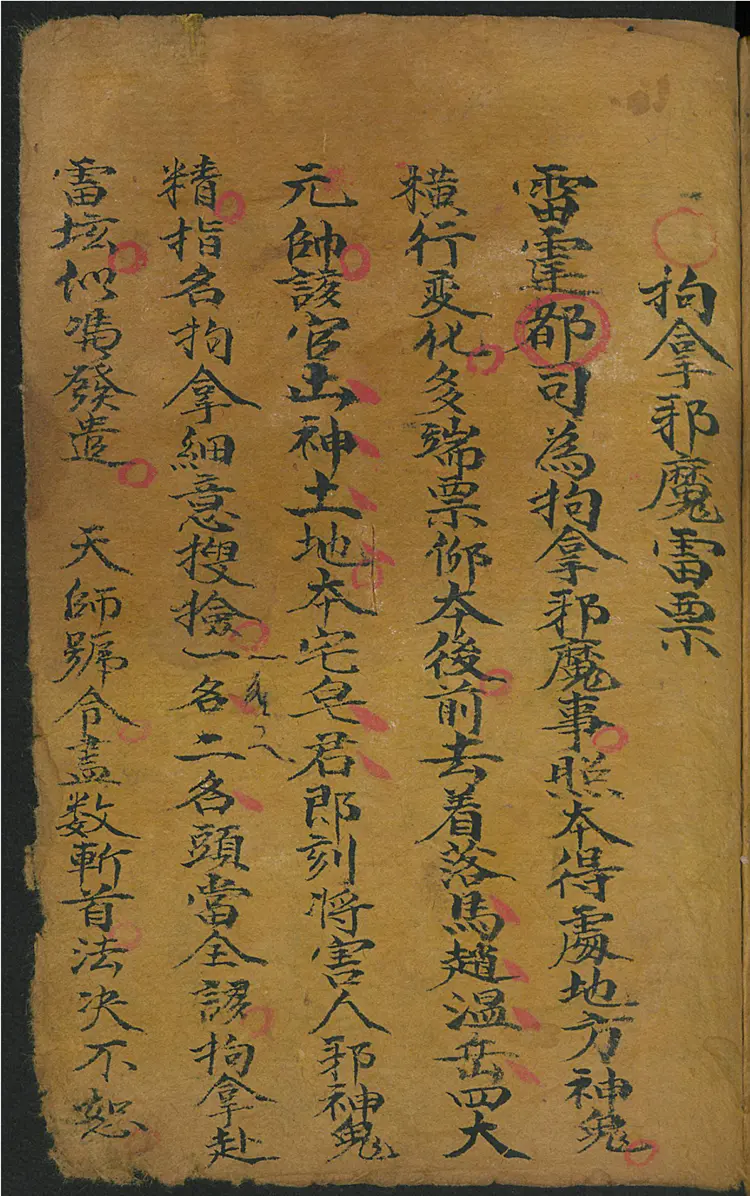 拘拿邪魔雷票
雷霆都司為拘拿邪魔事照本得處地方神鬼
橫行变化多端票仰本後前去着落馬趙温岳四大
元帥該官山神土地本宅皂君即刻将害人邪神鬼
精指名拘拿細意搜撿一名二名頭當全諺拘拿赴
雷坛似馮發遣 天師號令盡数斬首法决不恕